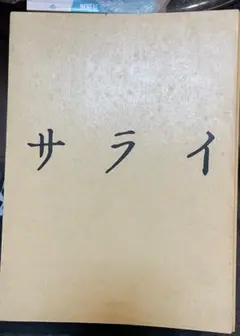 サライ